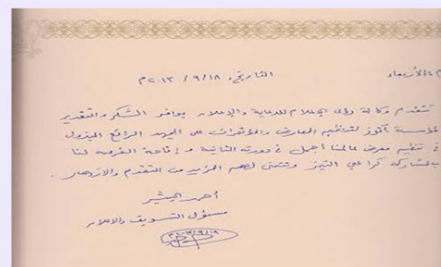 الأربعاء التاريخ: ٢٠١٣/٩/١٨م
تتقدم وكالة رؤى الإعلام للدعاية والإعلان بوافر الشكر والتقدير
لمؤسسة آنوز لتنظيم المعارض والمؤتمرات على الجهد الرائع المبذول
في تنظيم معرض عالمنا أجمل في دورته الثانية و إتاحة الفرصة لنا
بالمشاركة كراعي التميز ونتمنى لهم المزيد من التقدم والازدهار .
أحمد البشر
مسئول التسويق والإعلان